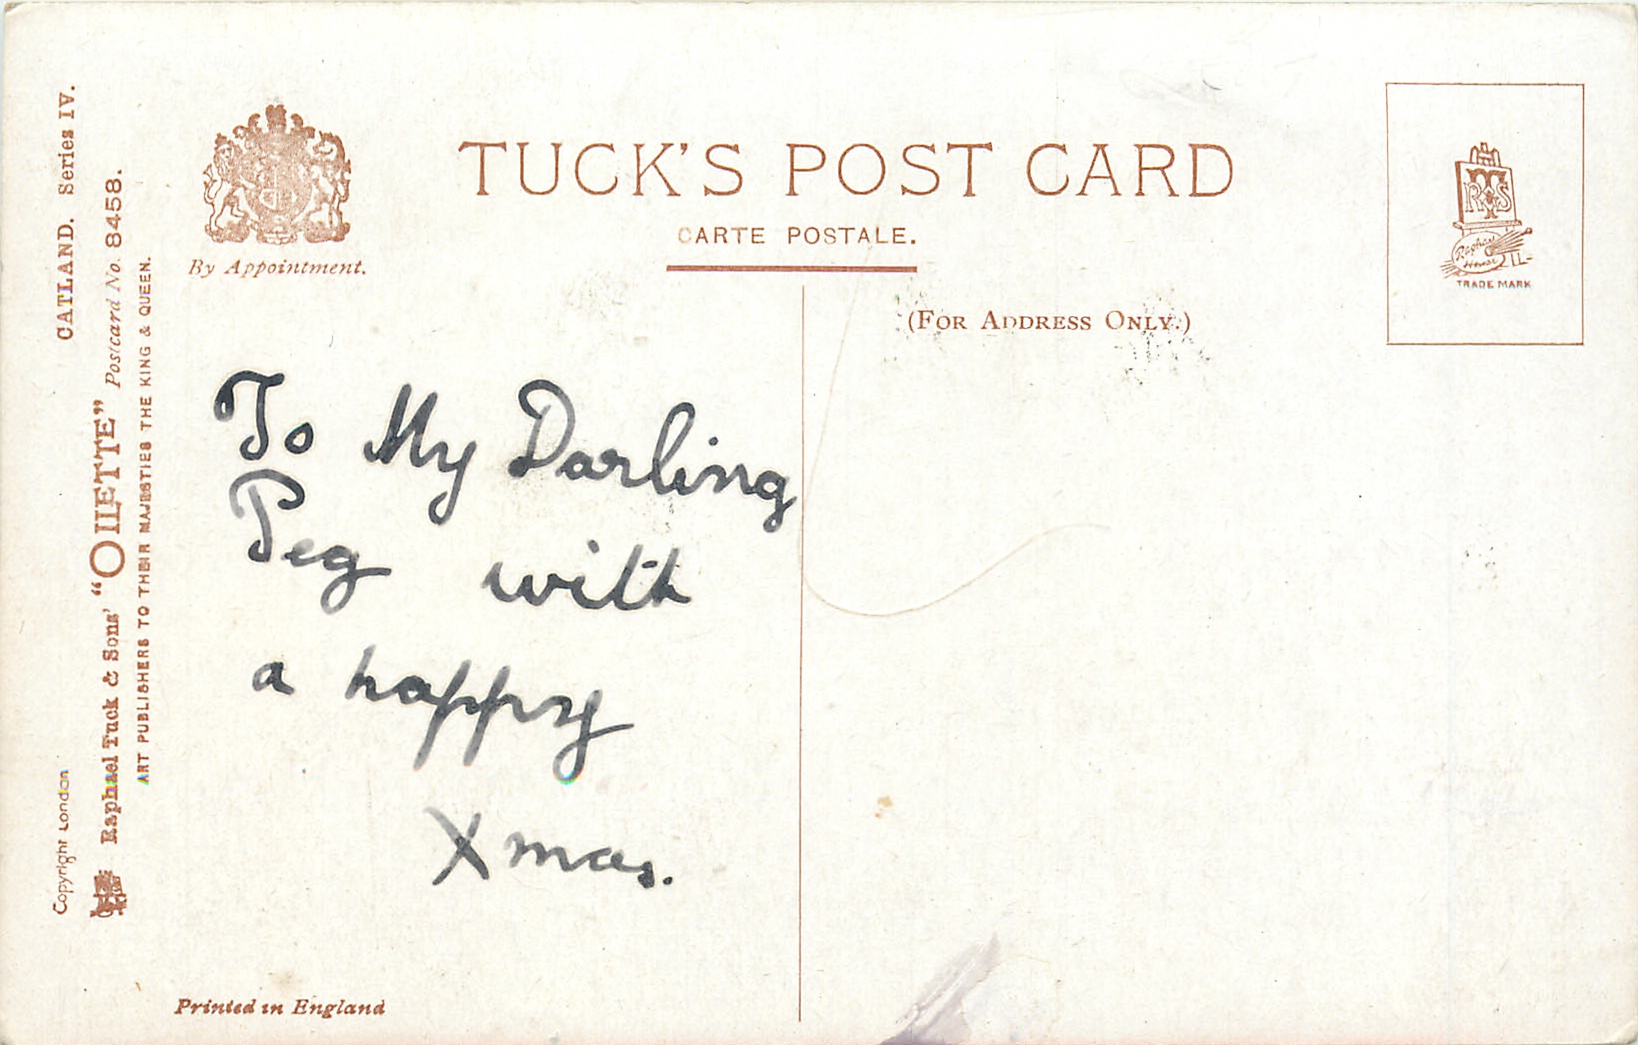 CATLAND. Series IV.
Raphael Tuck & Sons' "OILETTE" Postcard No. 8458.
ART PUBLISHERS TO THEIR MAJESTIES THE KING & QUEEN.
Copyright London
By Appointment.
TUCK'S POST CARD
CARTE POSTALE.
(FOR ADDRESS ONLY.)
RTS
Raphael
House
TRADE MARK
To My Darling
Peg with
a happy
Xmas.
Printed in England